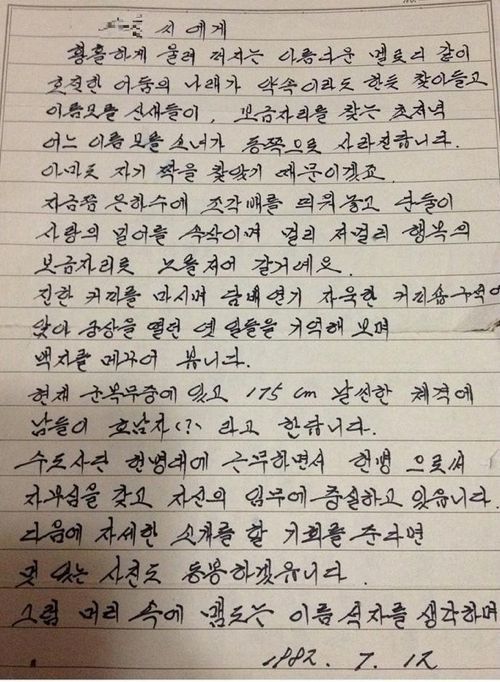 씨에게
황홀하게 울려 퍼지는 아름다운 멜로디 같이
호젓한 어둠의 나래가 약속이라도 한듯 찾아들고
이름모를 산새들이, 보금자리를 찾는 초저녁
어느 이름 모를 소녀가 동쪽으로 사라진답니다.
아마도 자기 짝을 찾았기 때문이겠죠.
지금쯤 은하수에 조각배를 띄워놓고 단둘이
사랑의 밀어를 속삭이며 멀리 저멀리 행복의
보금자리로 노를저어 갈거예요.
진한 커피를 마시며 담배연기 자욱한 커피숍구석에
앉아 궁상을 떨던 옛 일들을 기억해 보며
백지를 메꾸어 봅니다.
현재 군복무중에 있고 175cm 날씬한 체격에
남들이 호남자(?) 라고 한답니다.
수도사단 헌병대에 근무하면서 헌병으로써
자부심을 갖고 자신의 임무에 충실하고 있읍니다.
다음에 자세한 소개를 할 기회를 준다면
멋있는 사진도 동봉하겠읍니다.
그럼 머리 속에 맴도는 이름 석자를 생각하며
1982. 7. 12